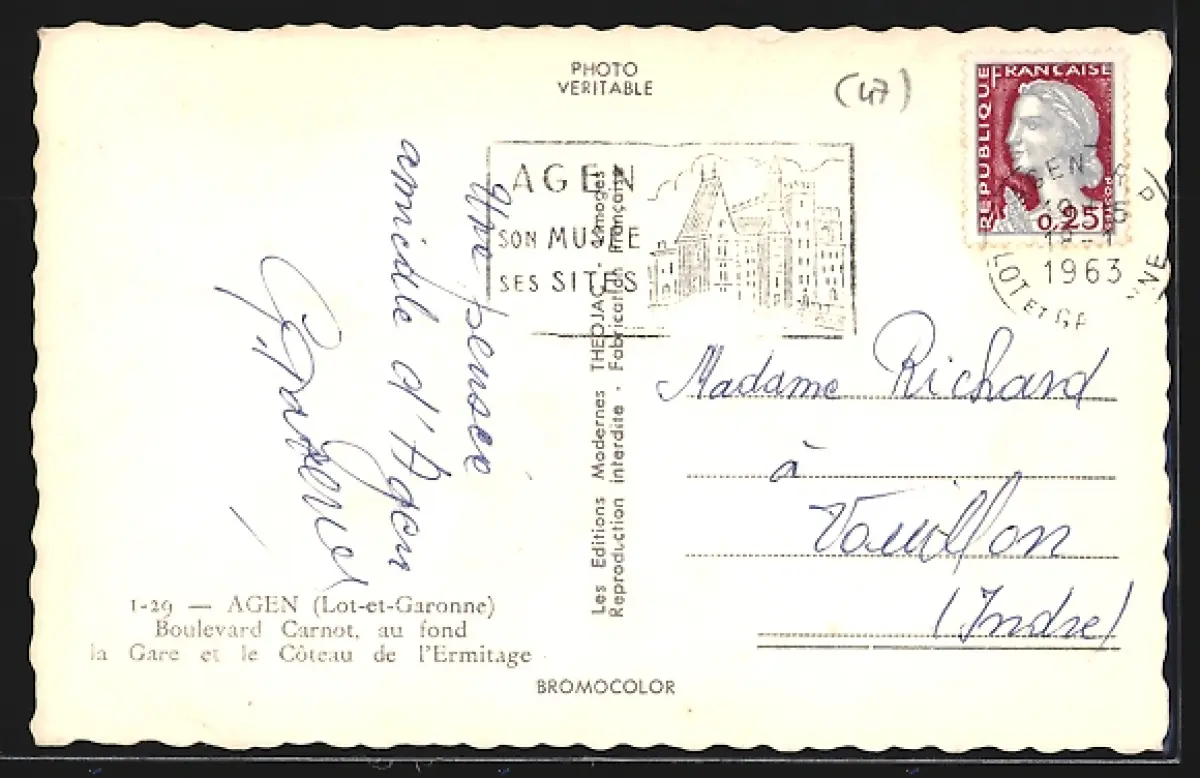 PHOTO
VERITABLE
(47)
RÉPUBLIQUE FRANÇAISE
0,25
AGEN
SON MUSÉE
SES SITES
AGEN
1963
LOT ET GA
NNE
Une pensée
amicale d'Agen
Les Editions Modernes THEOJAC - Limoges
Reproduction interdite - Fabrication Française
Madame Richard
à
Vouillon
(Indre)
1-29 — AGEN (Lot-et-Garonne)
Boulevard Carnot, au fond
la Gare et le Côteau de l'Ermitage
BROMOCOLOR